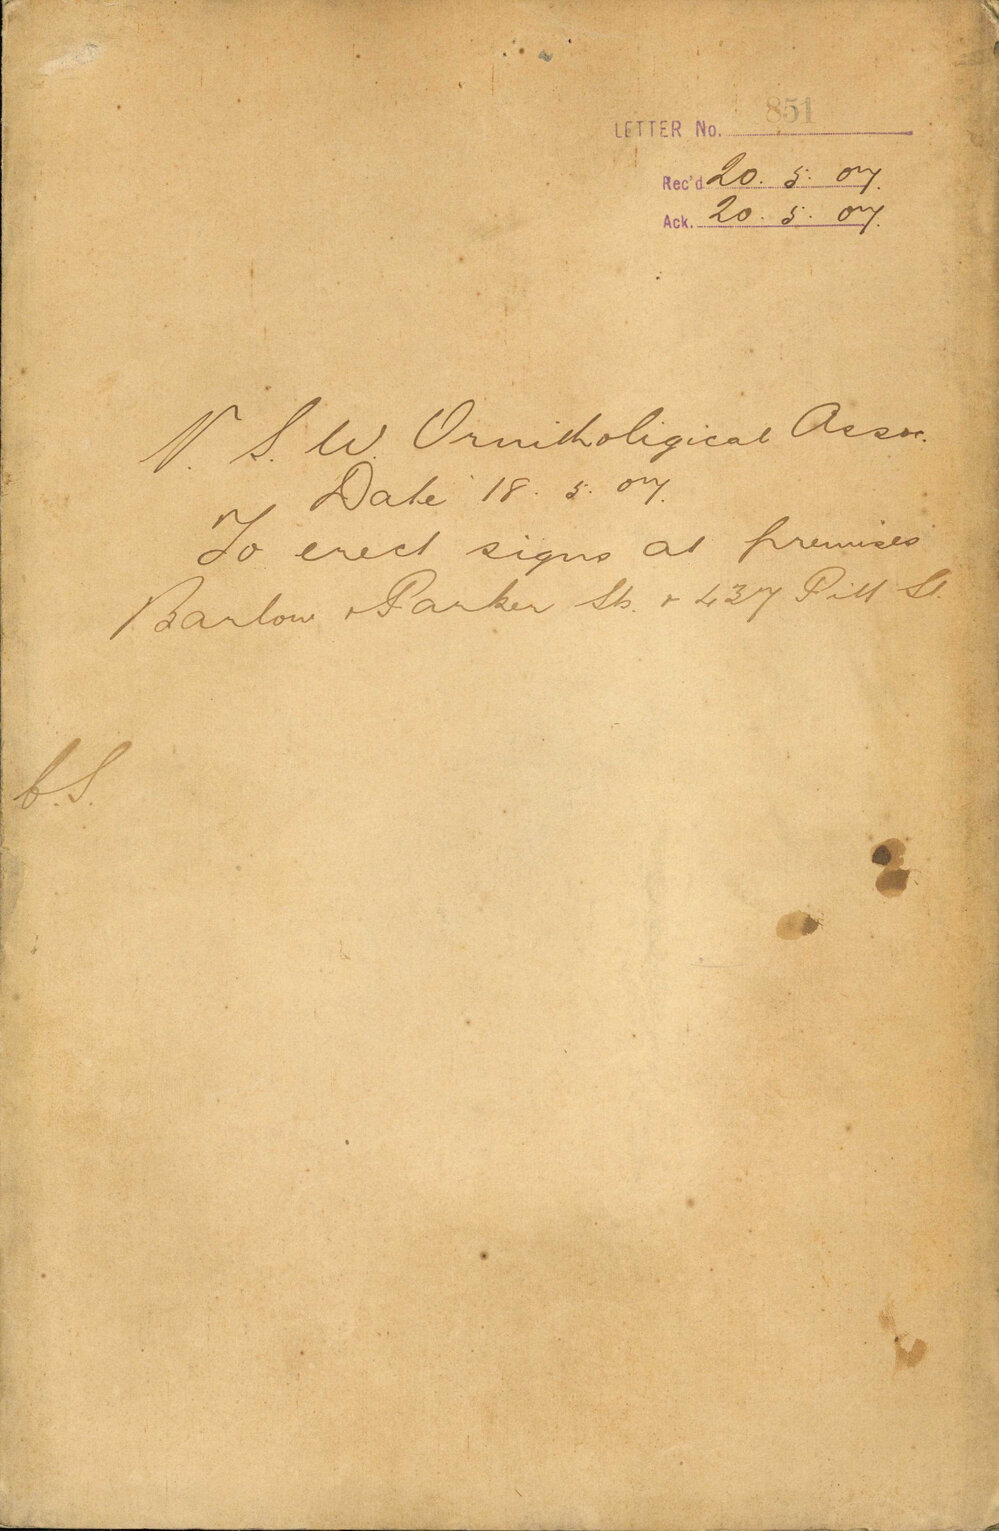 LETTER No. 851
Rec'd 20. 5. 07.
Ack. 20. 5. 07.
N. S. W. Ornitholigical Assoc.
Date 18. 5. 07.
To erect signs at premises
Barlow & Parker Sts. & 437 Pitt St.
C.S.